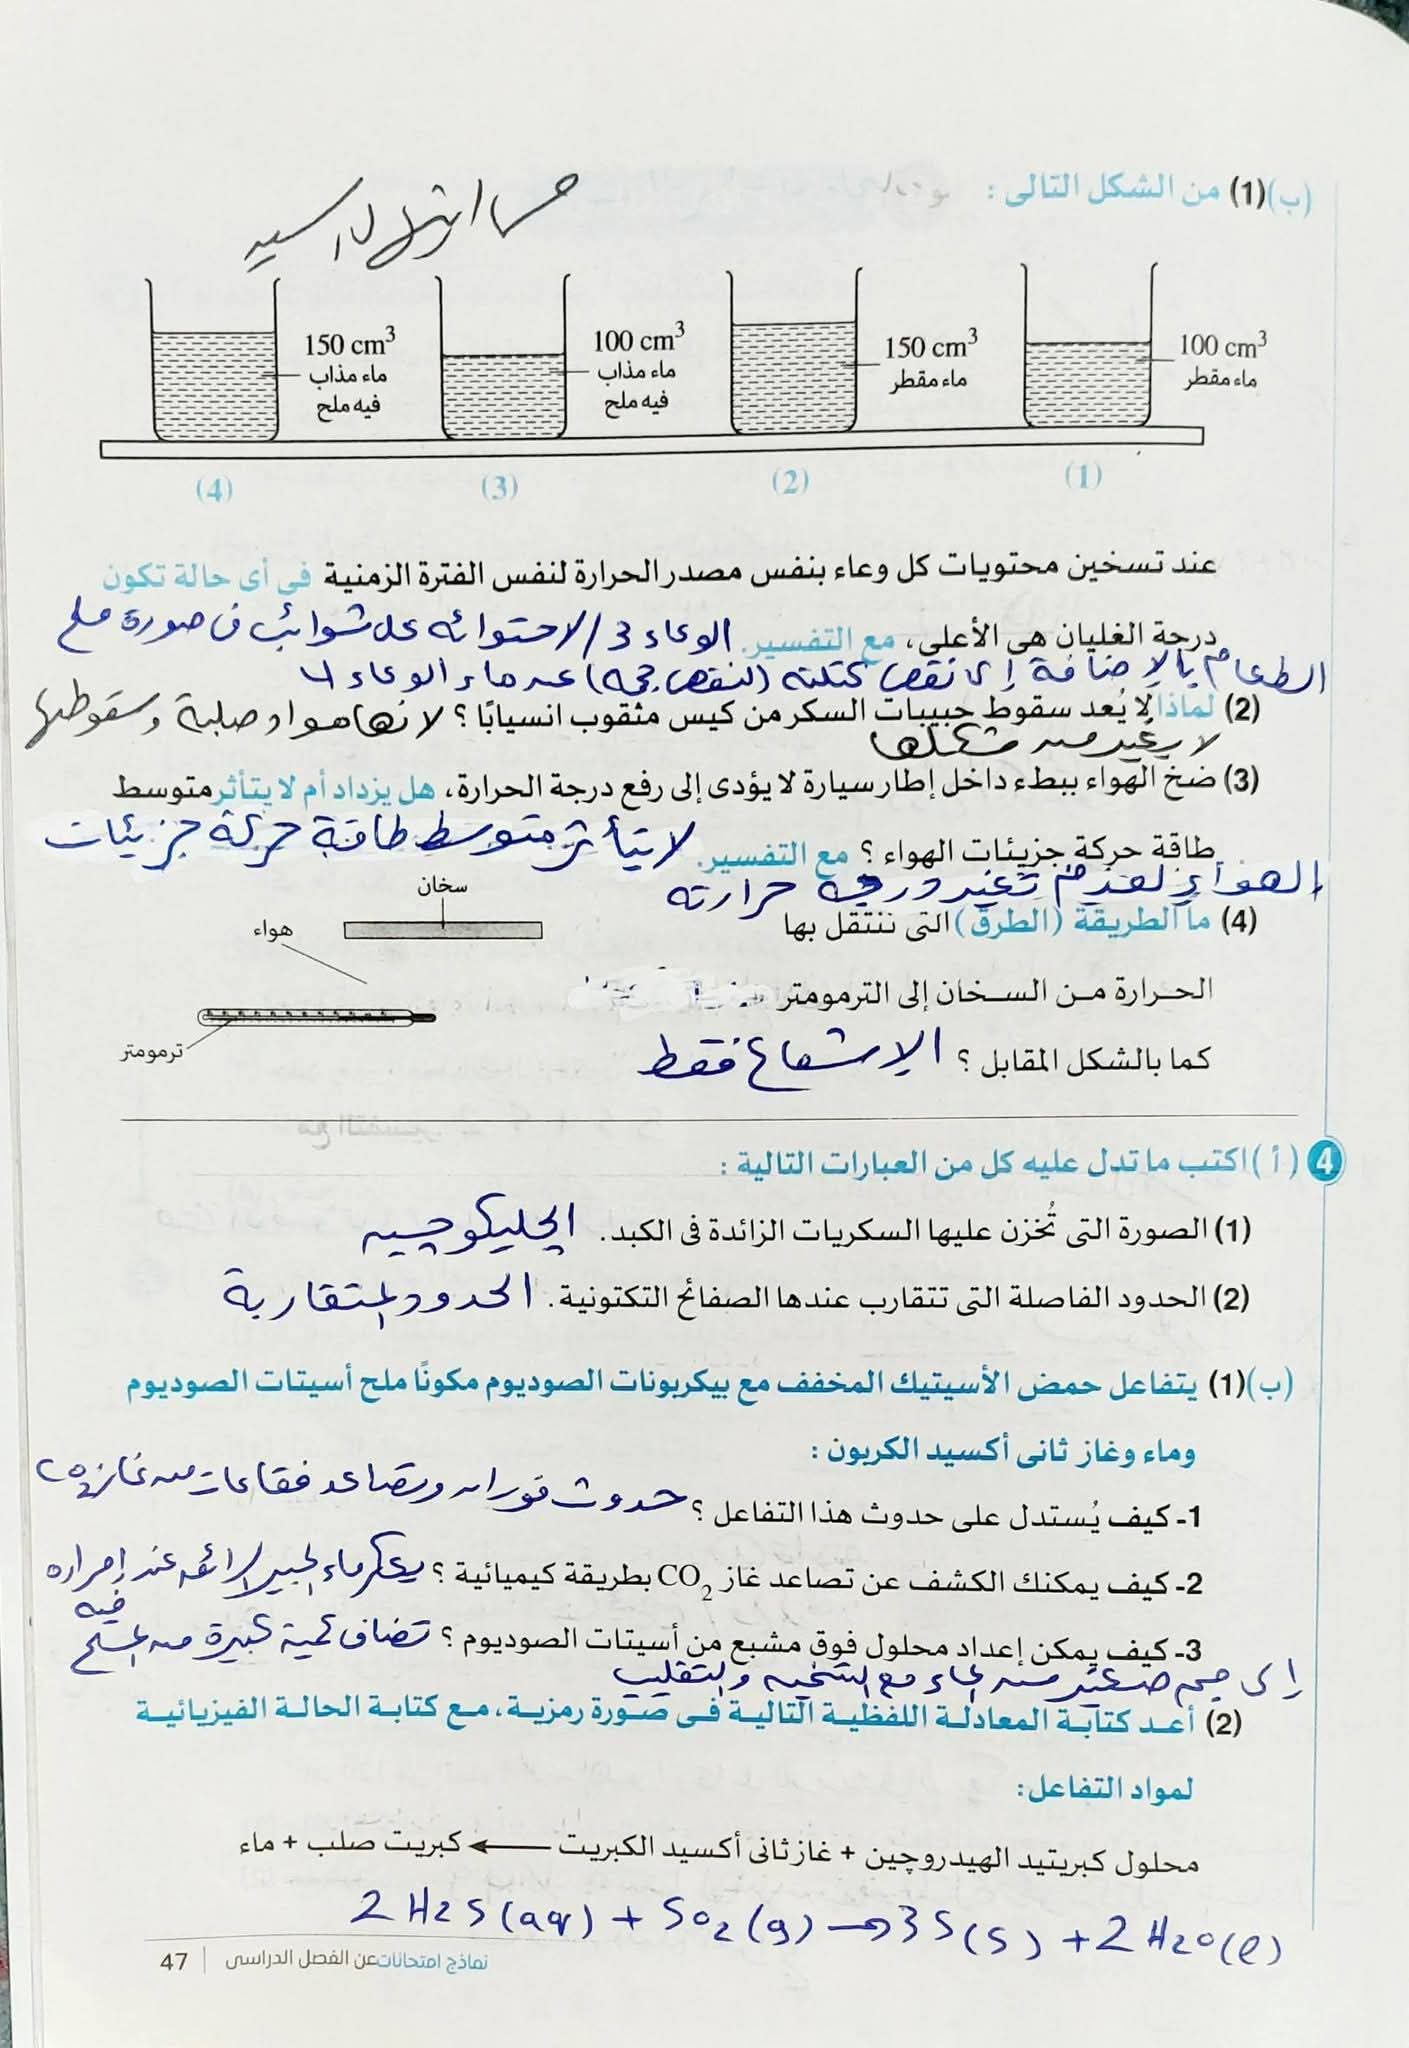 (ب)(1) من الشكل التالى :
100 cm³
ماء مقطر
150 cm³
ماء مقطر
100 cm³
ماء مذاب
فيه ملح
150 cm³
ماء مذاب
فيه ملح
(1)
(2)
(3)
(4)
عند تسخين محتويات كل وعاء بنفس مصدر الحرارة لنفس الفترة الزمنية فى أى حالة تكون
درجة الغليان هى الأعلى، مع التفسير. الوعاء 3 / لاحتوائه على شوائب فى صورة ملح
الطعام بالإضافة إلى نقص كتلته (لنقص حجمه) عن ماء الوعاء 4
(2) لماذا لا يُعد سقوط حبيبات السكر من كيس مثقوب انسيابًا ؟ لانها مواد صلبة وسقوطها
لا يغير من شكلها
(3) ضخ الهواء ببطء داخل إطار سيارة لا يؤدى إلى رفع درجة الحرارة، هل يزداد أم لا يتأثر متوسط
طاقة حركة جزيئات الهواء ؟ مع التفسير. لا يتأثر متوسط طاقة حركة جزيئات
الهواء لعدم تغير درجة حرارته
سخان
هواء
ترمومتر
(4) ما الطريقة (الطرق) التى تنتقل بها
الحرارة من السخان إلى الترمومتر
كما بالشكل المقابل ؟ الإشعاع فقط
4 (أ) اكتب ما تدل عليه كل من العبارات التالية :
(1) الصورة التى تُخزن عليها السكريات الزائدة فى الكبد. الجليكوچين
(2) الحدود الفاصلة التى تتقارب عندها الصفائح التكتونية. الحدود المتقاربة
(ب)(1) يتفاعل حمض الأسيتيك المخفف مع بيكربونات الصوديوم مكونًا ملح أسيتات الصوديوم
وماء وغاز ثانى أكسيد الكربون :
1- كيف يُستدل على حدوث هذا التفاعل ؟ حدوث فوران وتصاعد فقاعات من غاز CO₂
2- كيف يمكنك الكشف عن تصاعد غاز CO₂ بطريقة كيميائية ؟ يعكر ماء الجير الرائق عند إمراره
فيه
3- كيف يمكن إعداد محلول فوق مشبع من أسيتات الصوديوم ؟ تضاف كمية كبيرة من الملح
إلى حجم صغير من الماء مع التسخين والتقليب
(2) أعد كتابة المعادلة اللفظية التالية فى صورة رمزية، مع كتابة الحالة الفيزيائية
لمواد التفاعل:
محلول كبريتيد الهيدروچين + غاز ثانى أكسيد الكبريت ← كبريت صلب + ماء
2 H2S(aq) + SO2(g) → 3S(s) + 2H2O(l)
نماذج امتحانات عن الفصل الدراسى | 47